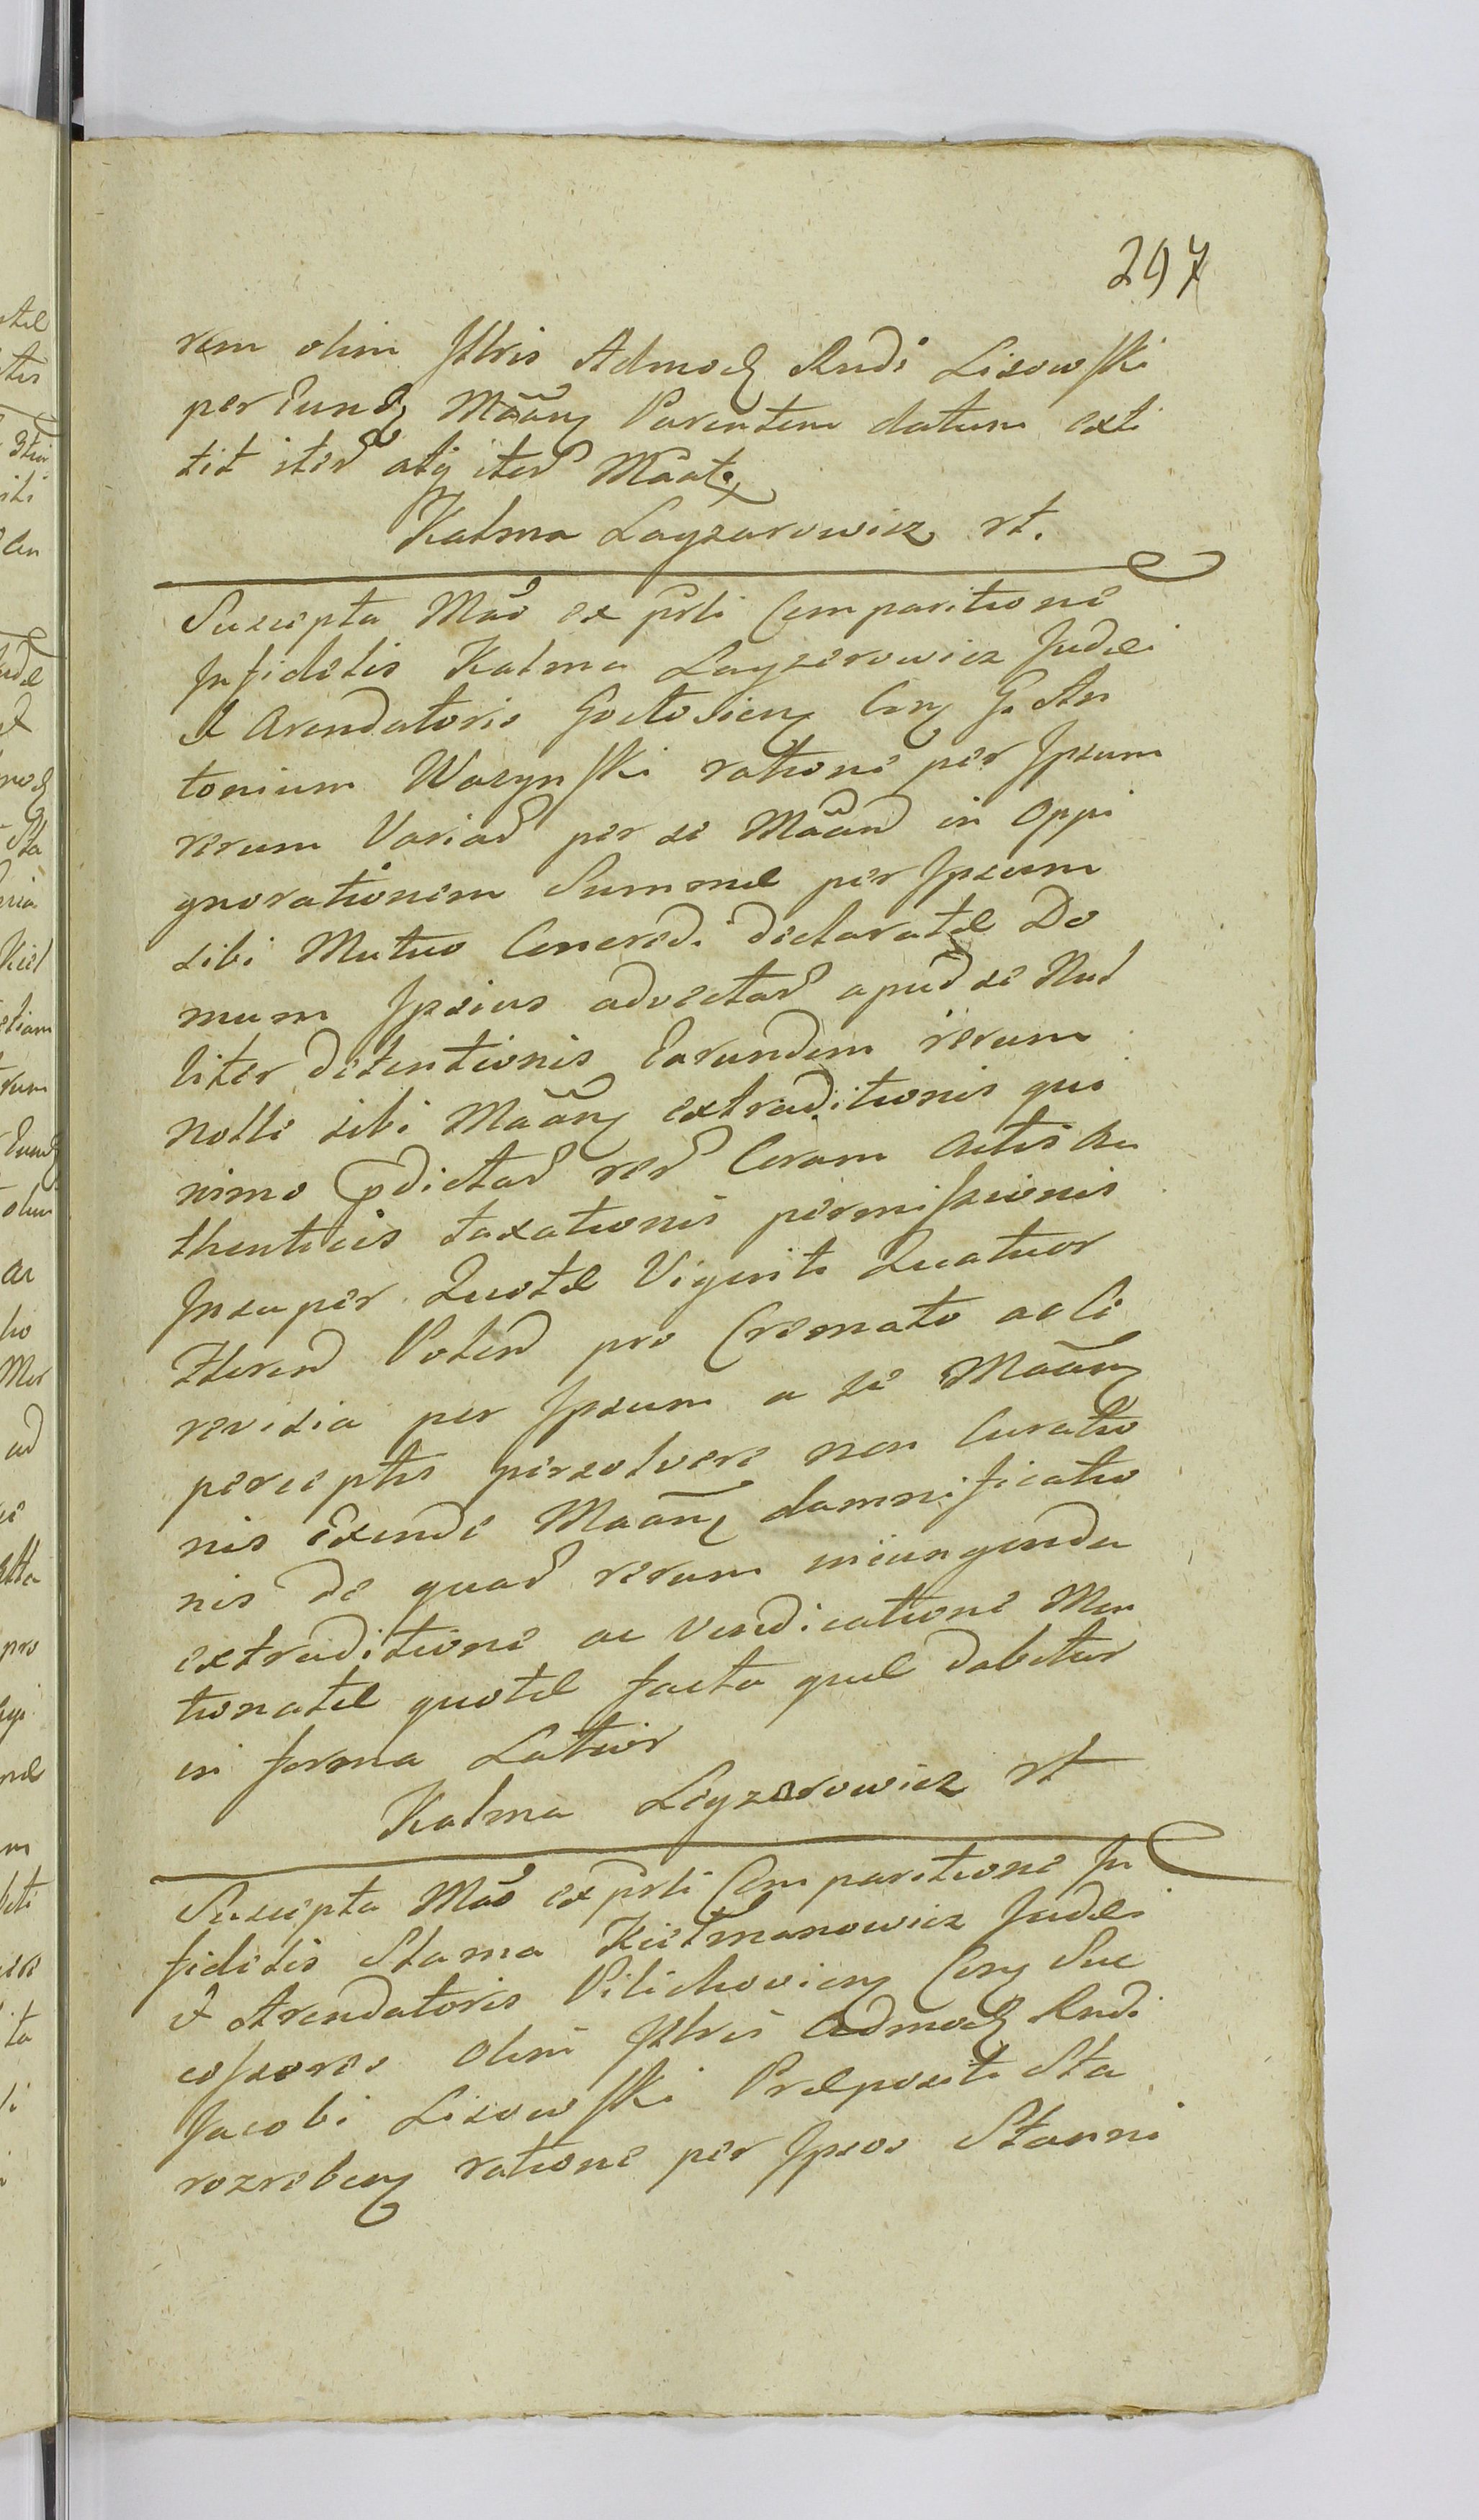 297
rem olim Jllris Admod Rndi Lisowski
per Eund Mãan Parentem datum exti
tit iter atq iter Mãat
Kalma Layzarowicz rt.
Suscepta Mão ex prli Comparitione
Jnfidelis Kalma Layzerowicz Judæi
& Arendatoris Goctovien Con G. An
tonium Wasynski ratione per Jpsum
rerum Variar per se Mãan in Oppi
gnorationem Summæ per Jpsum
sibi Mutuo Concred. declaratæ Do
mum Jpsius advectar apud se Nul
liter detentionis Earundem rerum
nolle sibi Mãan extraditionis qui
nimo pdictar rer Coram Actis Au
thenticis taxationis permissionis
Jnsuper Quotæ Viginti Quatuor
floren Polen pro Cremato ac Ce
revisia per Jpsum a se Mãan
perceptis persolvere non Curatio
nis Exinde Mãan damnificatio
nis de quar rerum iniungenda
extraditione ac Vendicatione Men
tionatæ quotæ facta quæ dabitur
in forma Latior
Kalma Leyzarowicz rt
Suscepta Mão ex prli Comparitione Jn
fidelis Slama Kielmanowicz Judæi
& Arendatoris Pilichovien Con Suc
cessores Olim Jllris Admod Rndi
Jacobi Lisowski Præpositi Sta
rozreben ratione per Jpsos Stanni